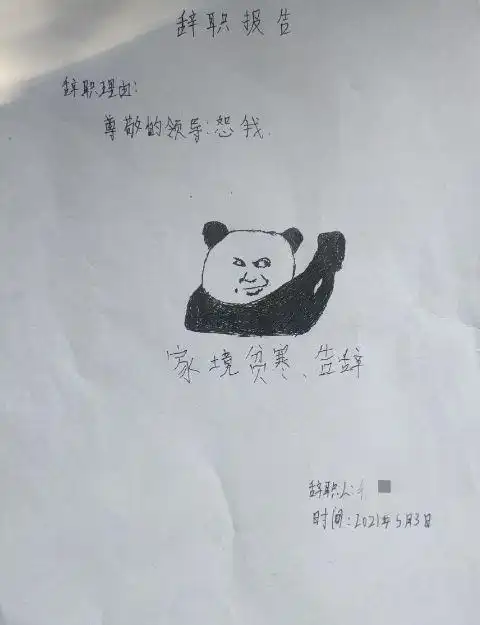 辞职报告
辞职理由:
尊敬的领导:恕我.
家境贫寒、告辞
辞职人:
时间:2021年5月3日